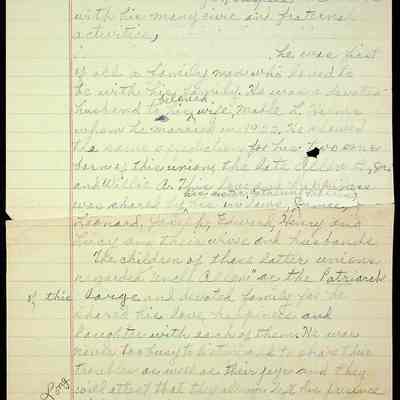 with his many civic and fraternal
activities,
he was first
of all a family man who loved to
be with his family. He was a devoted
beloved
husband to his wife, Mable L.
whom he married in 1922. He showed
the same affection for his two sons
born of this union, the late
and Willie A. This love and happiness
his sister,
was shared by his in-laws,
Leonard, Joseph, Edward, Henry and
Lucy and their wives and husbands.
The children of these latter unions
regarded "Uncle " as the Patriarch
of this large and devoted family for he
shared his love, happiness and
laughter with each of them. He was
never too busy to listen and to share their
troubles as well as their joys and they
will attest that they always felt his presence
Long